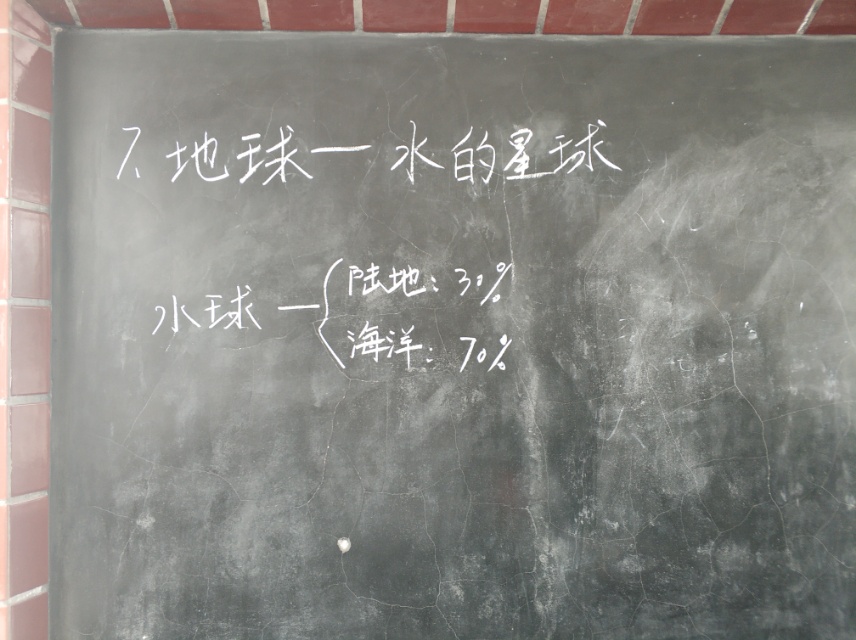 7、地球一水的星球
水球—{陆地：30%
海洋：70%